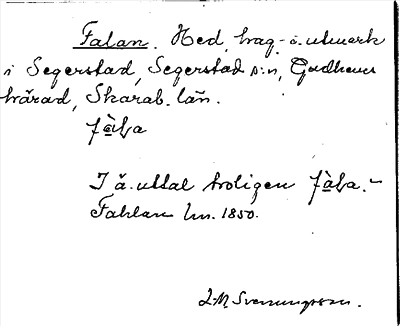 Falan. Hed, hag- o. utmark
i Segerstad, Segerstad s:n, Gudhems
härad, Skarab. län.
fàḷa
I ä. uttal troligen fàḷa.
Fahlan lm. 1850.
J.M. Svennungsson.